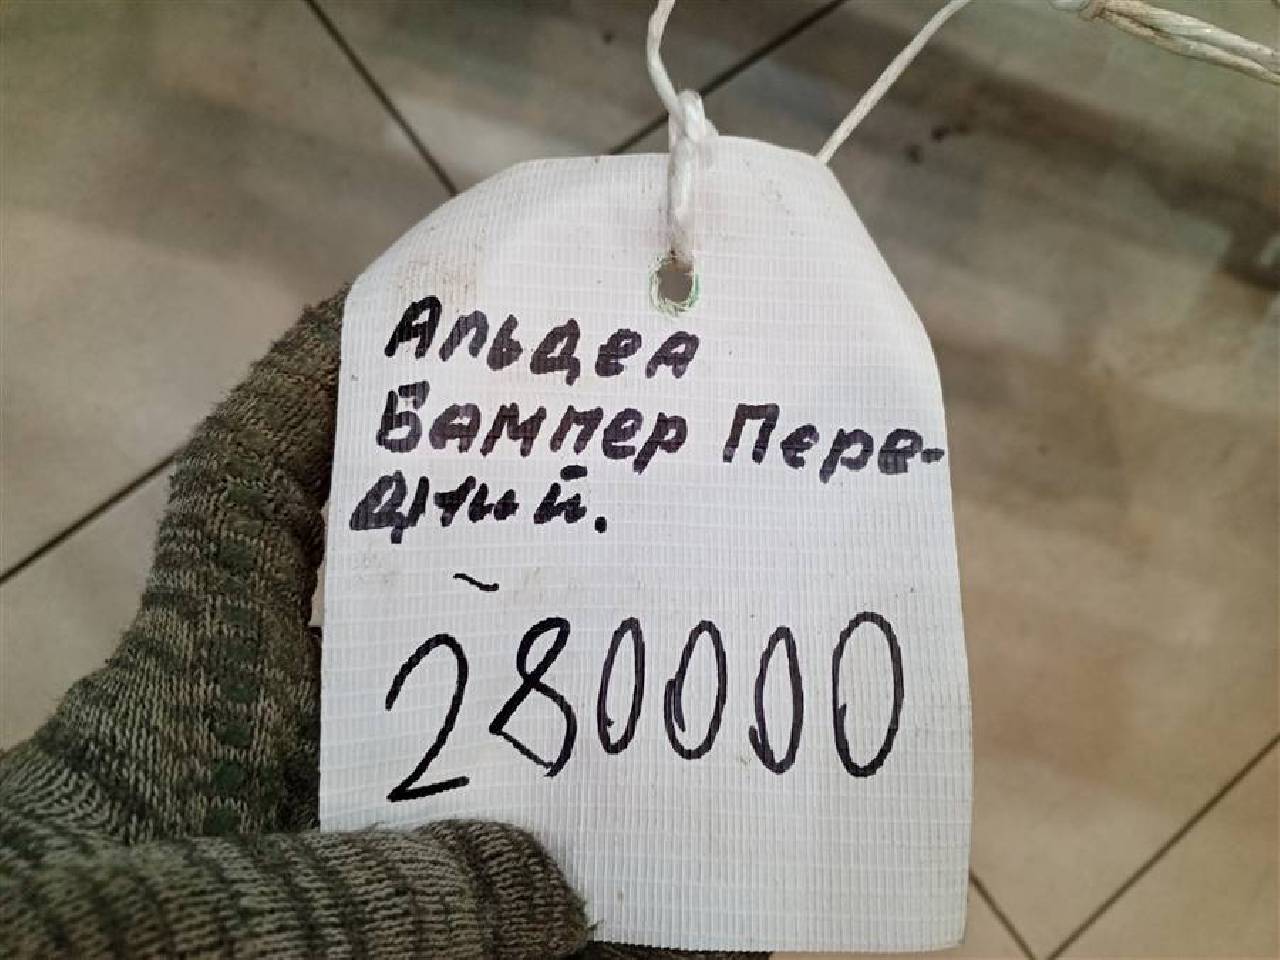 Альдеа
Бампер Пере-
дний.
280000